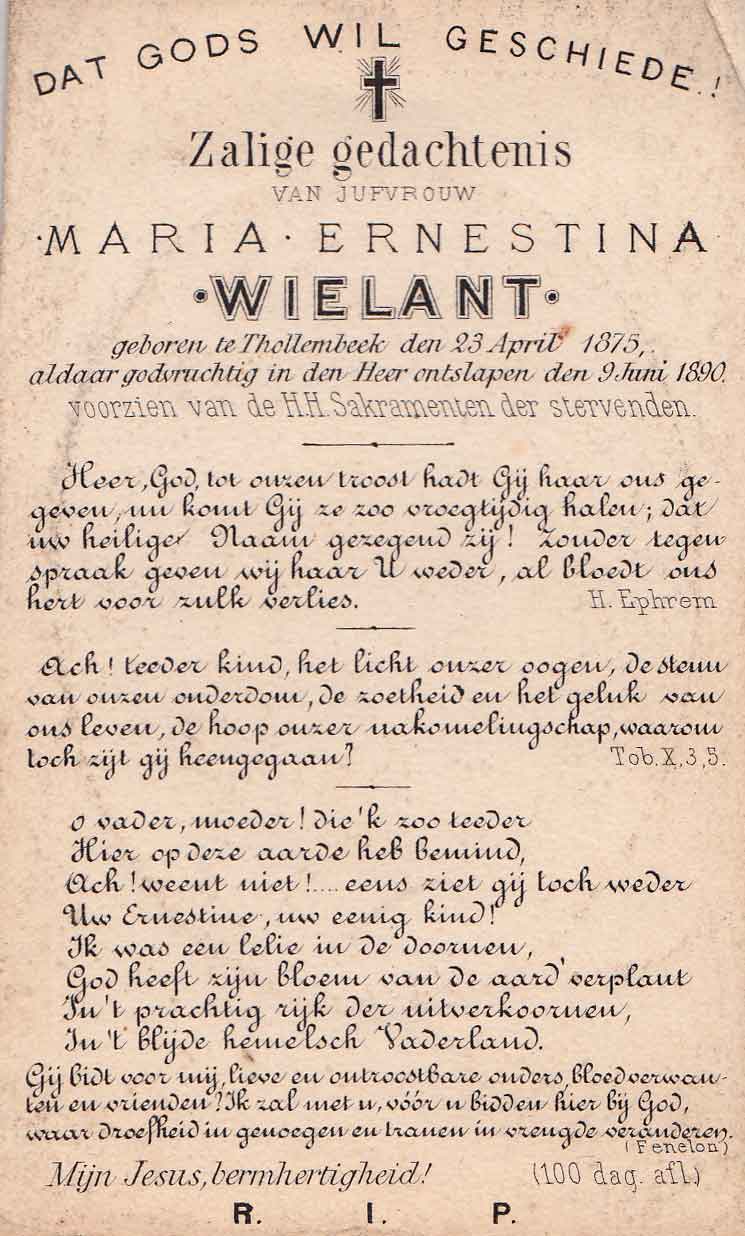 DAT GODS WIL GESCHIEDE.!
Zalige gedachtenis
VAN JUFVROUW
·MARIA·ERNESTINA
·WIELANT·
geboren te Thollembeek den 23 April 1875,
aldaar godvruchtig in den Heer ontslapen den 9 Juni 1890.
voorzien van de H.H. Sakramenten der stervenden.
Heer, God, tot onzen troost hadt Gij haar ons ge-
geven, nu komt Gij ze zoo vroegtijdig halen; dat
uw heilige Naam gezegend zij! Zonder tegen
spraak geven wij haar U weder, al bloedt ons
hert voor zulk verlies. H. Ephrem
Ach! teeder kind, het licht onzer oogen, de steun
van onzen onderdom, de zoetheid en het geluk van
ons leven, de hoop onzer nakomelingschap, waarom
toch zijt gij heengegaan? Tob. X, 3, 5.
O vader, moeder! die 'k zoo teeder
Hier op deze aarde heb bemind,
Ach! weent niet!.... eens ziet gij toch weder
Uw Ernestine, uw eenig kind!
Ik was een lelie in de doornen,
God heeft zijn bloem van de aard' verplant
In 't prachtig rijk der uitverkoornen,
In 't blijde hemelsch Vaderland.
Gij bidt voor mij, lieve en ontroostbare ouders, bloedverwan-
ten en vrienden? Ik zal met u, vóór u bidden hier bij God,
waar droefheid in genoegen en tranen in vreugde veranderen.
(Fenelon)
Mijn Jesus, bermhertigheid! (100 dag. afl.)
R. I. P.